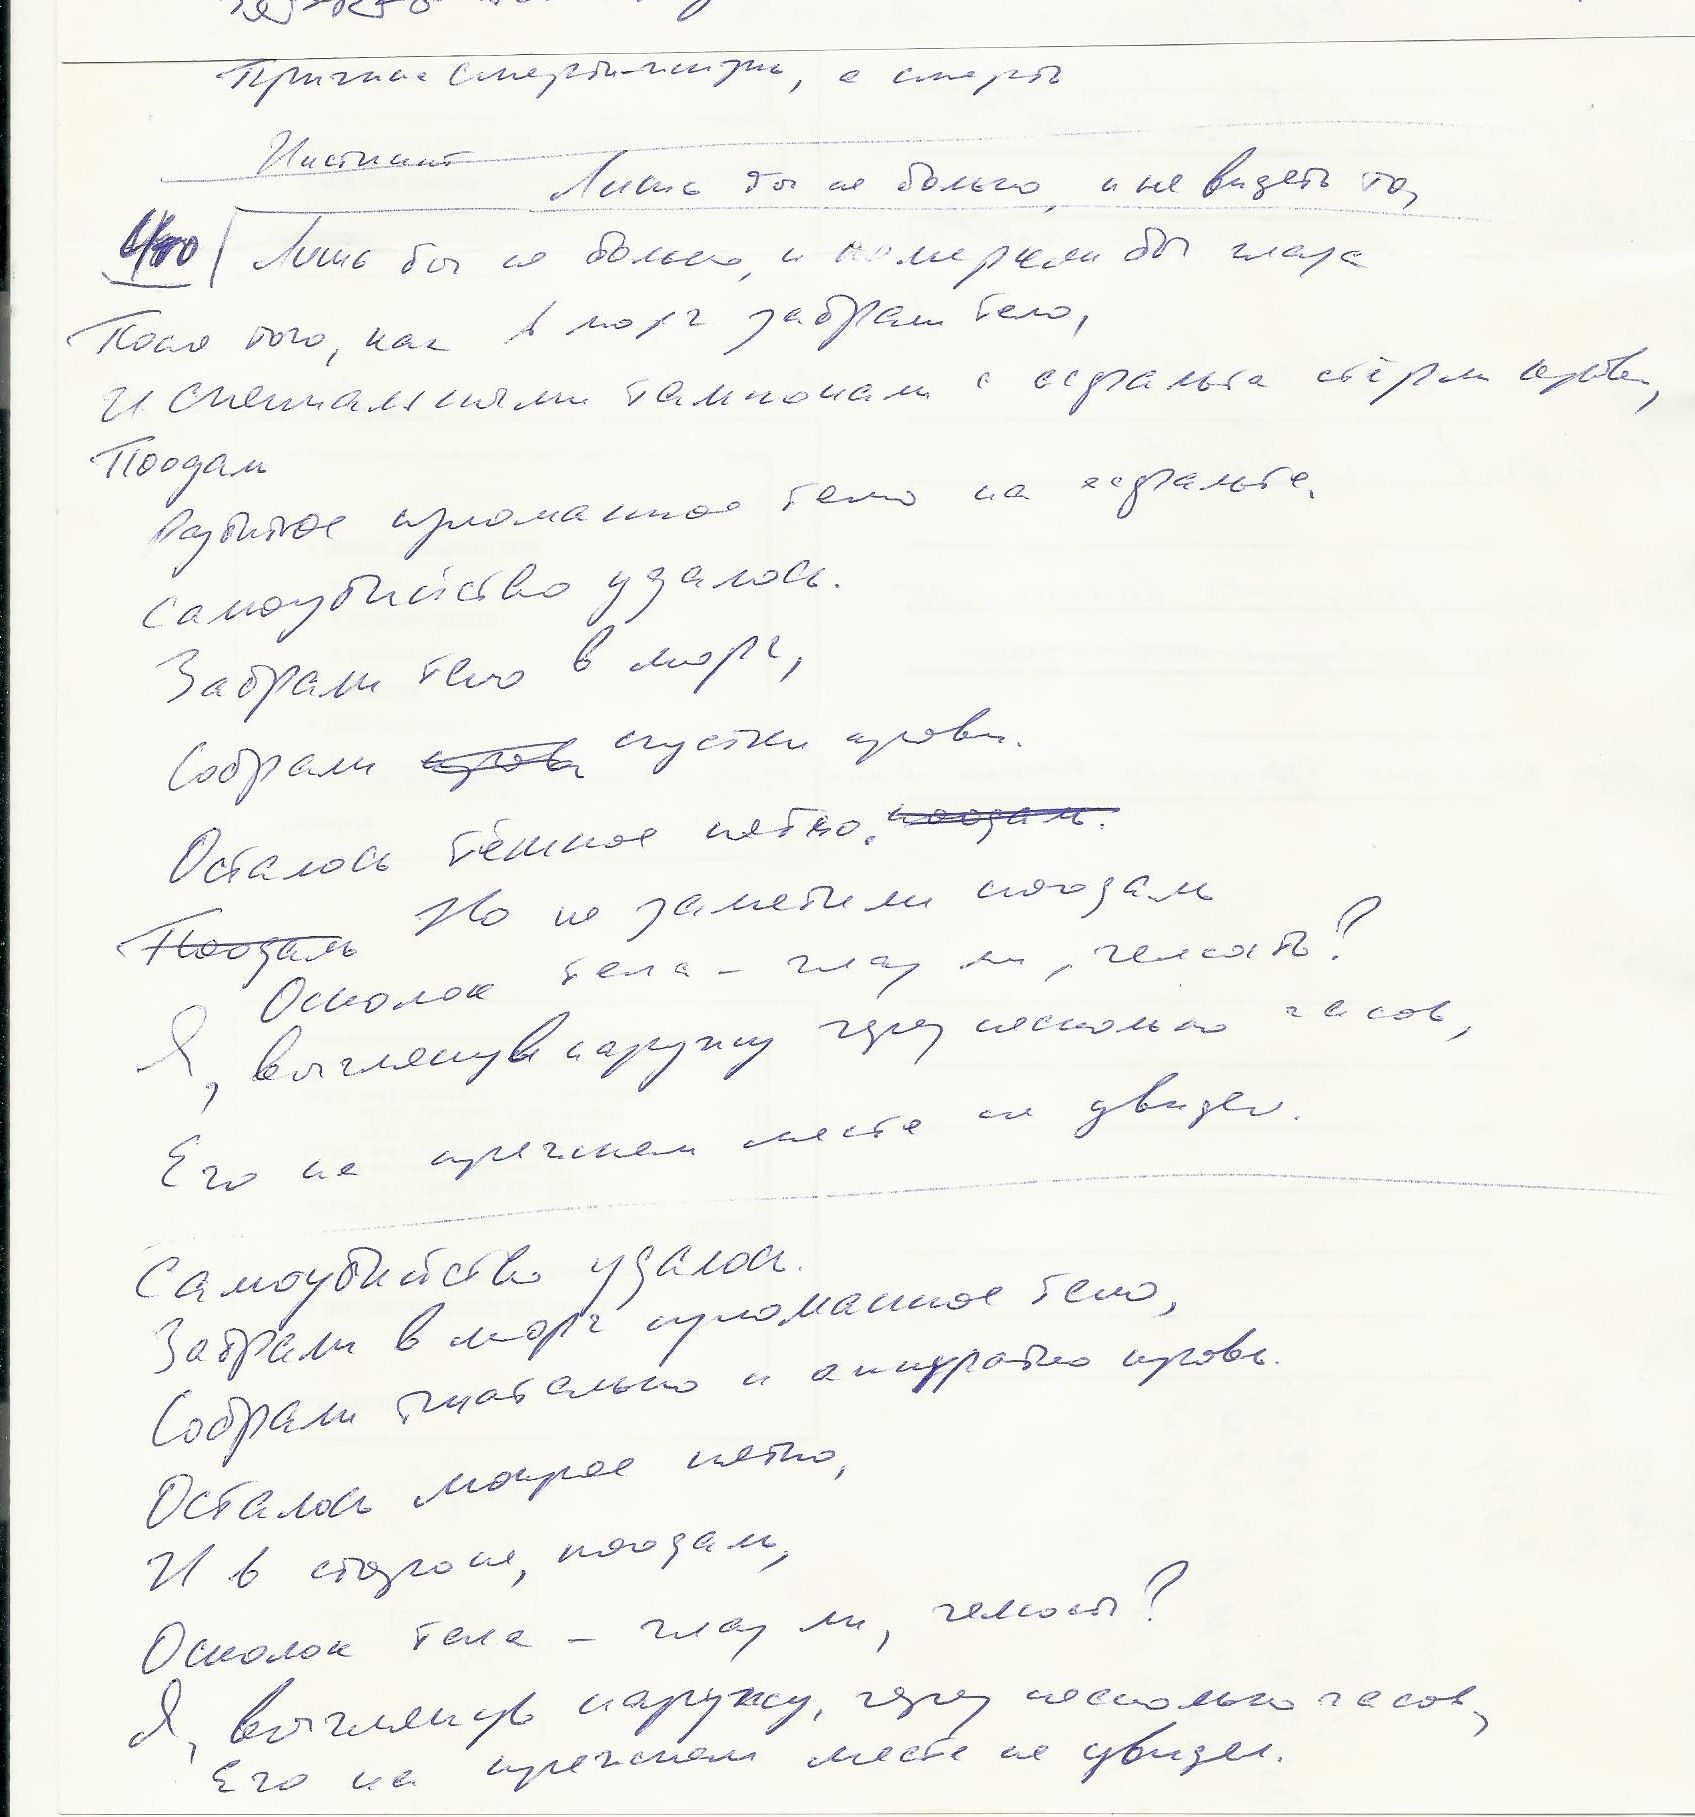 Причина смерти – жизнь, а смерть
Инстинкт
Лишь бы не больно, и не видеть то,
Что
Лишь бы не больно, и померкли бы глаза
После того, как в морг забрали тело,
И специальными тампонами с асфальта стёрли кровь,
Поодаль
Разбитое изломанное тело на асфальте.
Самоубийство удалось.
Забрали тело в морг,
Собрали кровь сгустки крови.
Осталось тёмное пятно. поодаль.
Но не заметили поодаль
Поодаль
Осколок тела – глаз ли, челюсть?
Я, выглянув наружу через несколько часов,
Его на прежнем месте не увидел.
Самоубийство удалось.
Забрали в морг изломанное тело,
Собрали тщательно и аккуратно кровь.
Осталось мокрое пятно,
И в стороне, поодаль,
Осколок тела – глаз ли, челюсть?
Я, выглянув наружу, через несколько часов,
Его на прежнем месте не увидел.